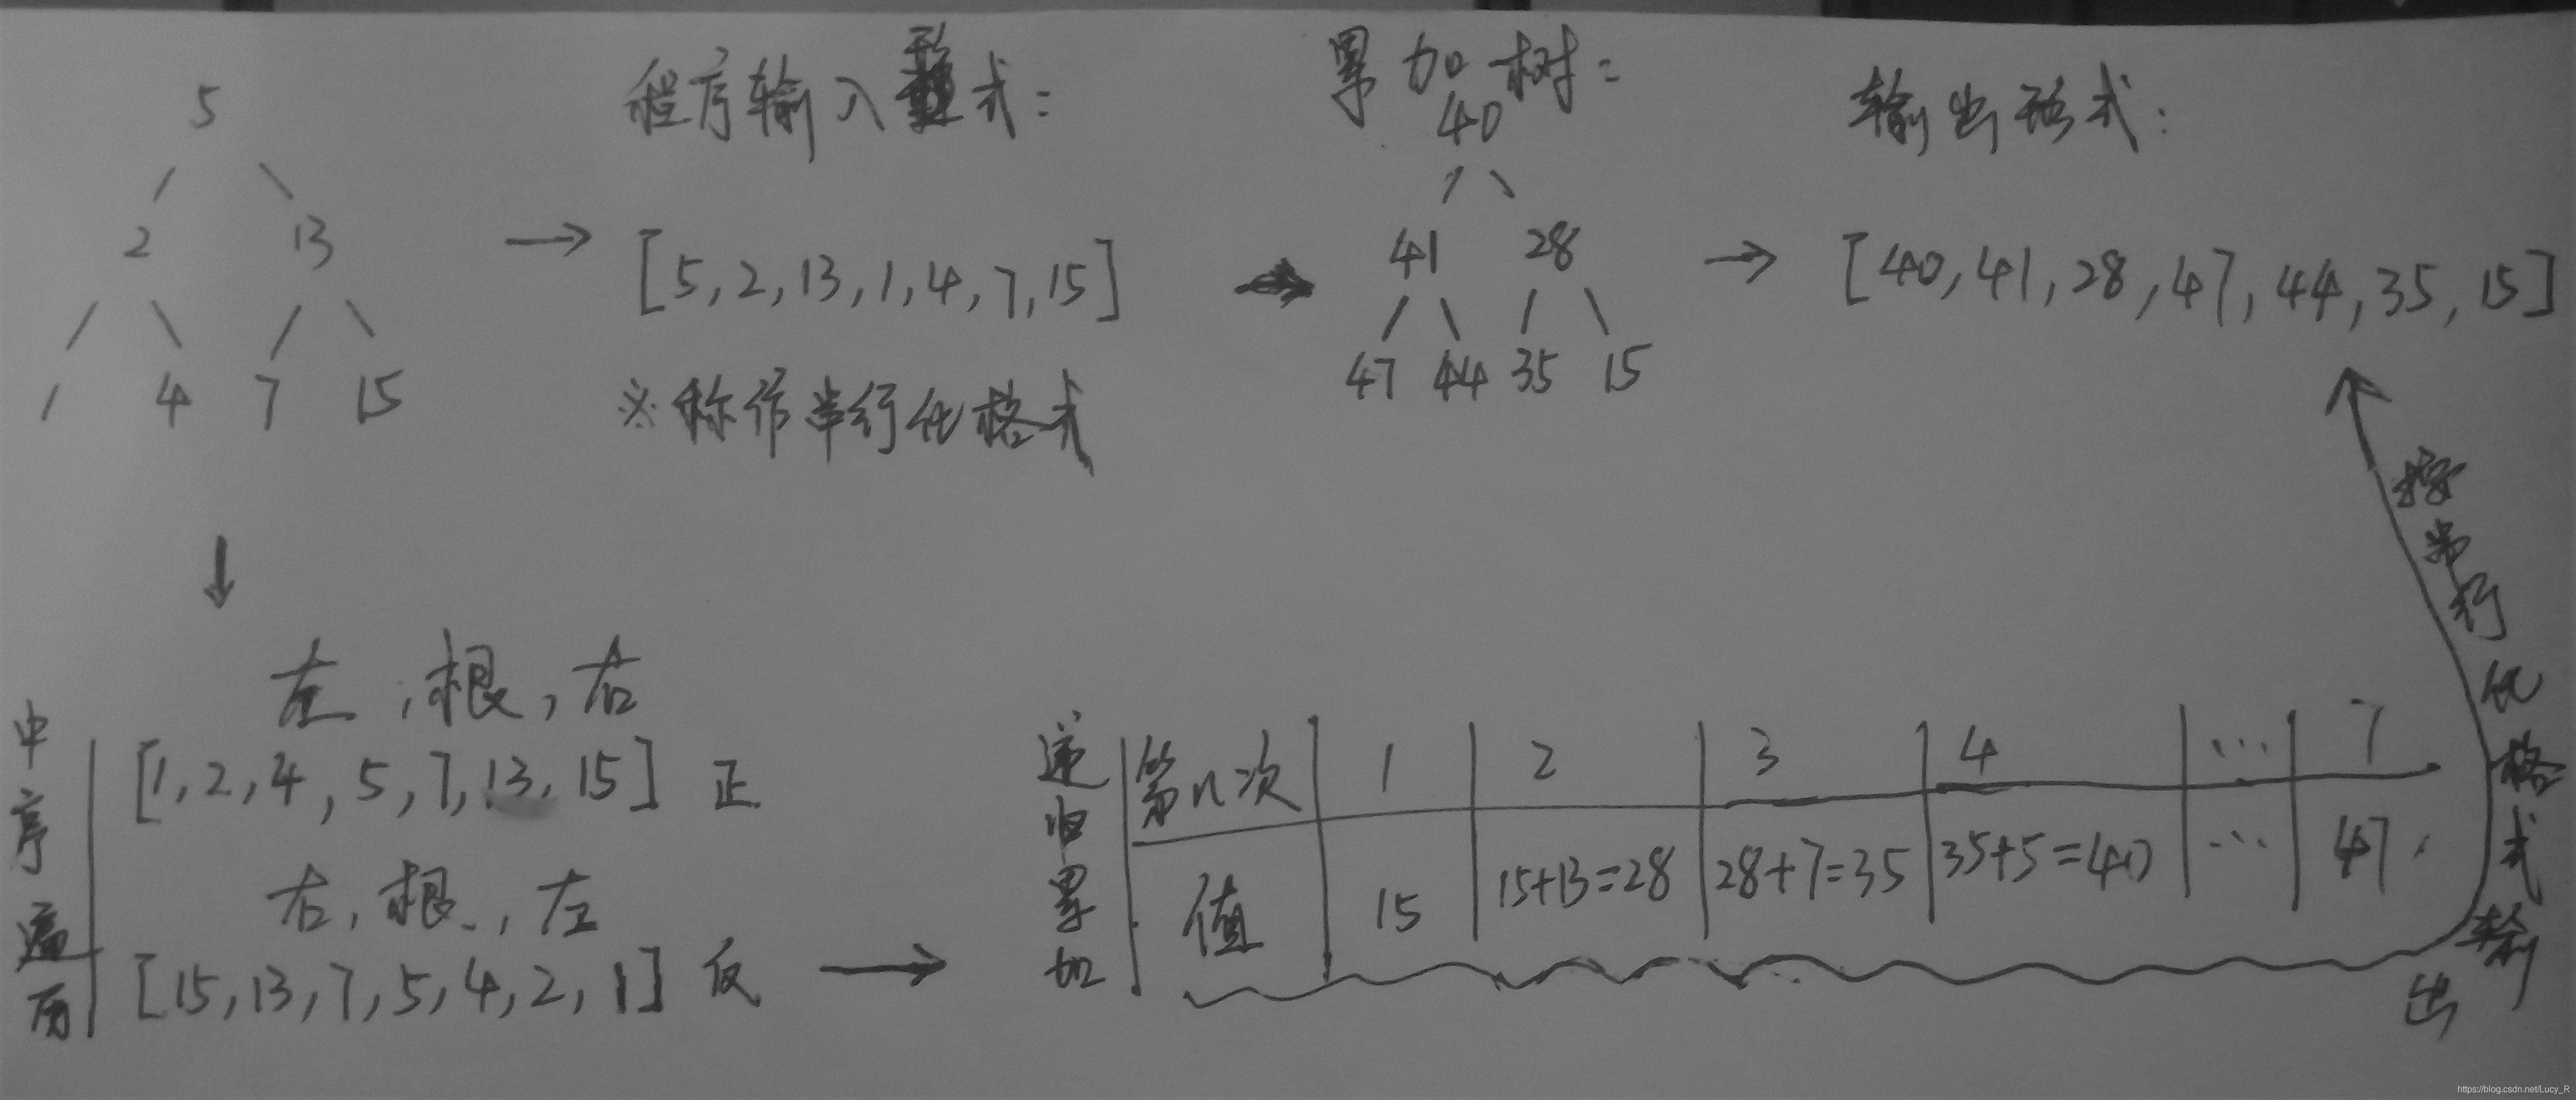 5
2 13
1 4 7 15
程序输入形式：
[5,2,13,1,4,7,15]
※称作串行化格式
累加树：
40
41 28
47 44 35 15
输出形式：
[40,41,28,47,44,35,15]
按串行化格式输出
中序遍历
左,根,右
[1,2,4,5,7,13,15] 正
右,根,左
[15,13,7,5,4,2,1] 反
递归累加
第n次 1 2 3 4 ... 7
值 15 15+13=28 28+7=35 35+5=40 ... 47
https://blog.csdn.net/Lucy_R